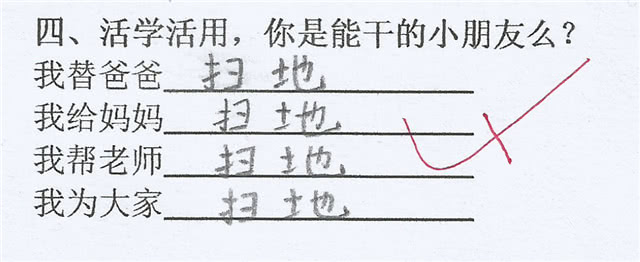 四、活学活用，你是能干的小朋友么？
我替爸爸扫地
我给妈妈扫地
我帮老师扫地
我为大家扫地